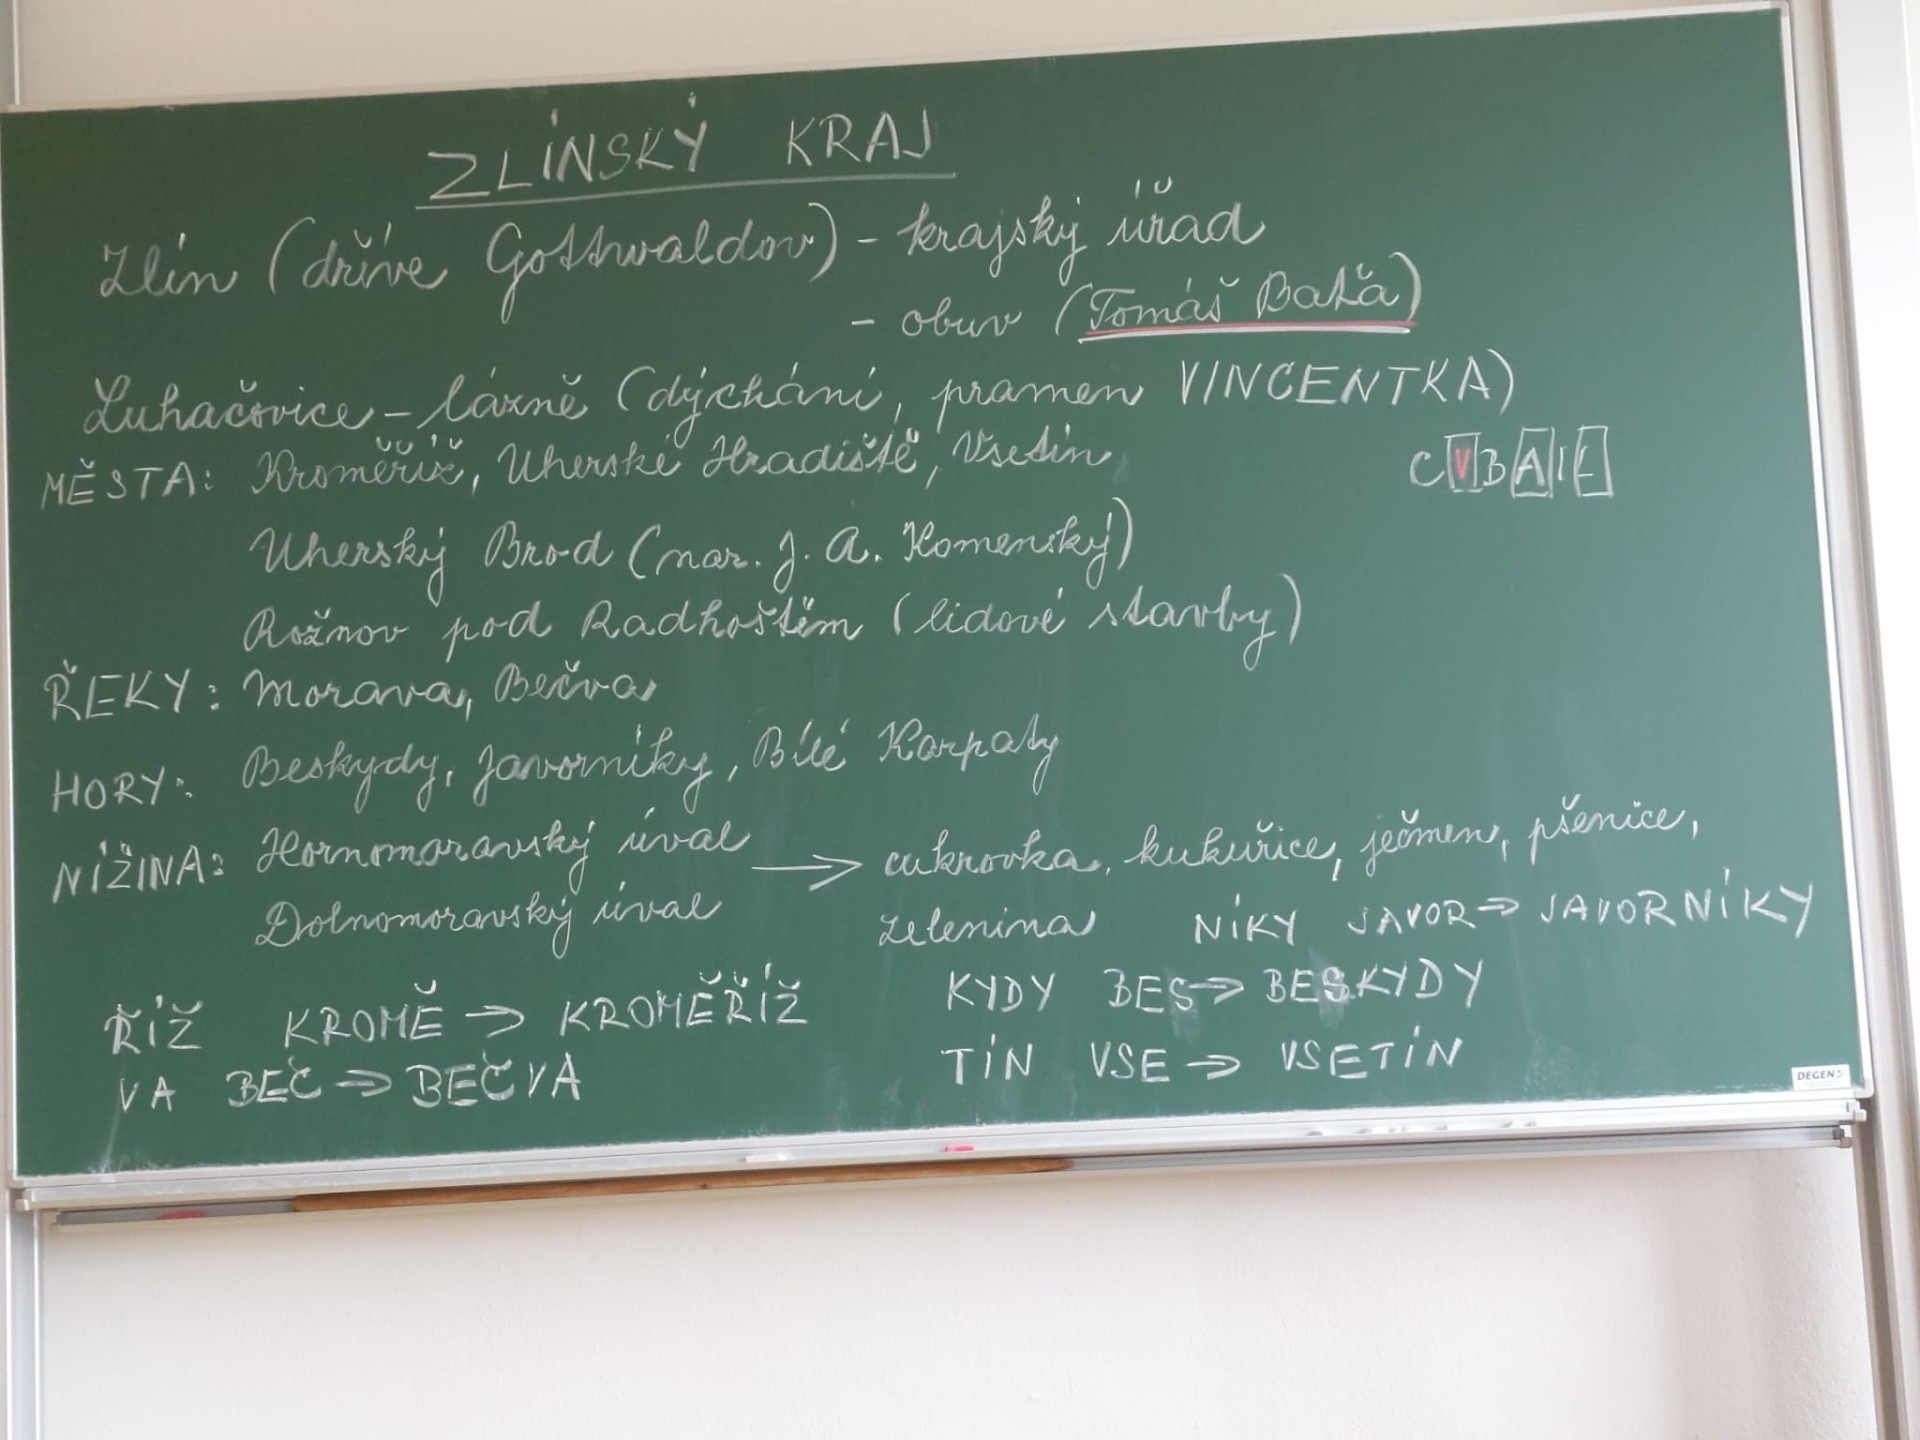 ZLÍNSKÝ KRAJ
Zlín (dříve Gottwaldov) - krajský úřad
- obuv (Tomáš Baťa)
Luhačovice - lázně (dýchání, pramen VINCENTKA)
MĚSTA: Kroměříž, Uherské Hradiště, Vsetín
C V B A I E
Uherský Brod (nar. J. A. Komenský)
Rožnov pod Radhoštěm (lidové stavby)
ŘEKY: Morava, Bečva
HORY: Beskydy, Javorníky, Bílé Karpaty
NÍŽINA: Hornomoravský úval → cukrovka, kukuřice, ječmen, pšenice,
Dolnomoravský úval zelenina
NÍKY JAVOR → JAVORNÍKY
ŘÍŽ KROMĚ → KROMĚŘÍŽ
KYDY BES → BESKYDY
VA BEČ → BEČVA
TÍN VSE → VSETÍN